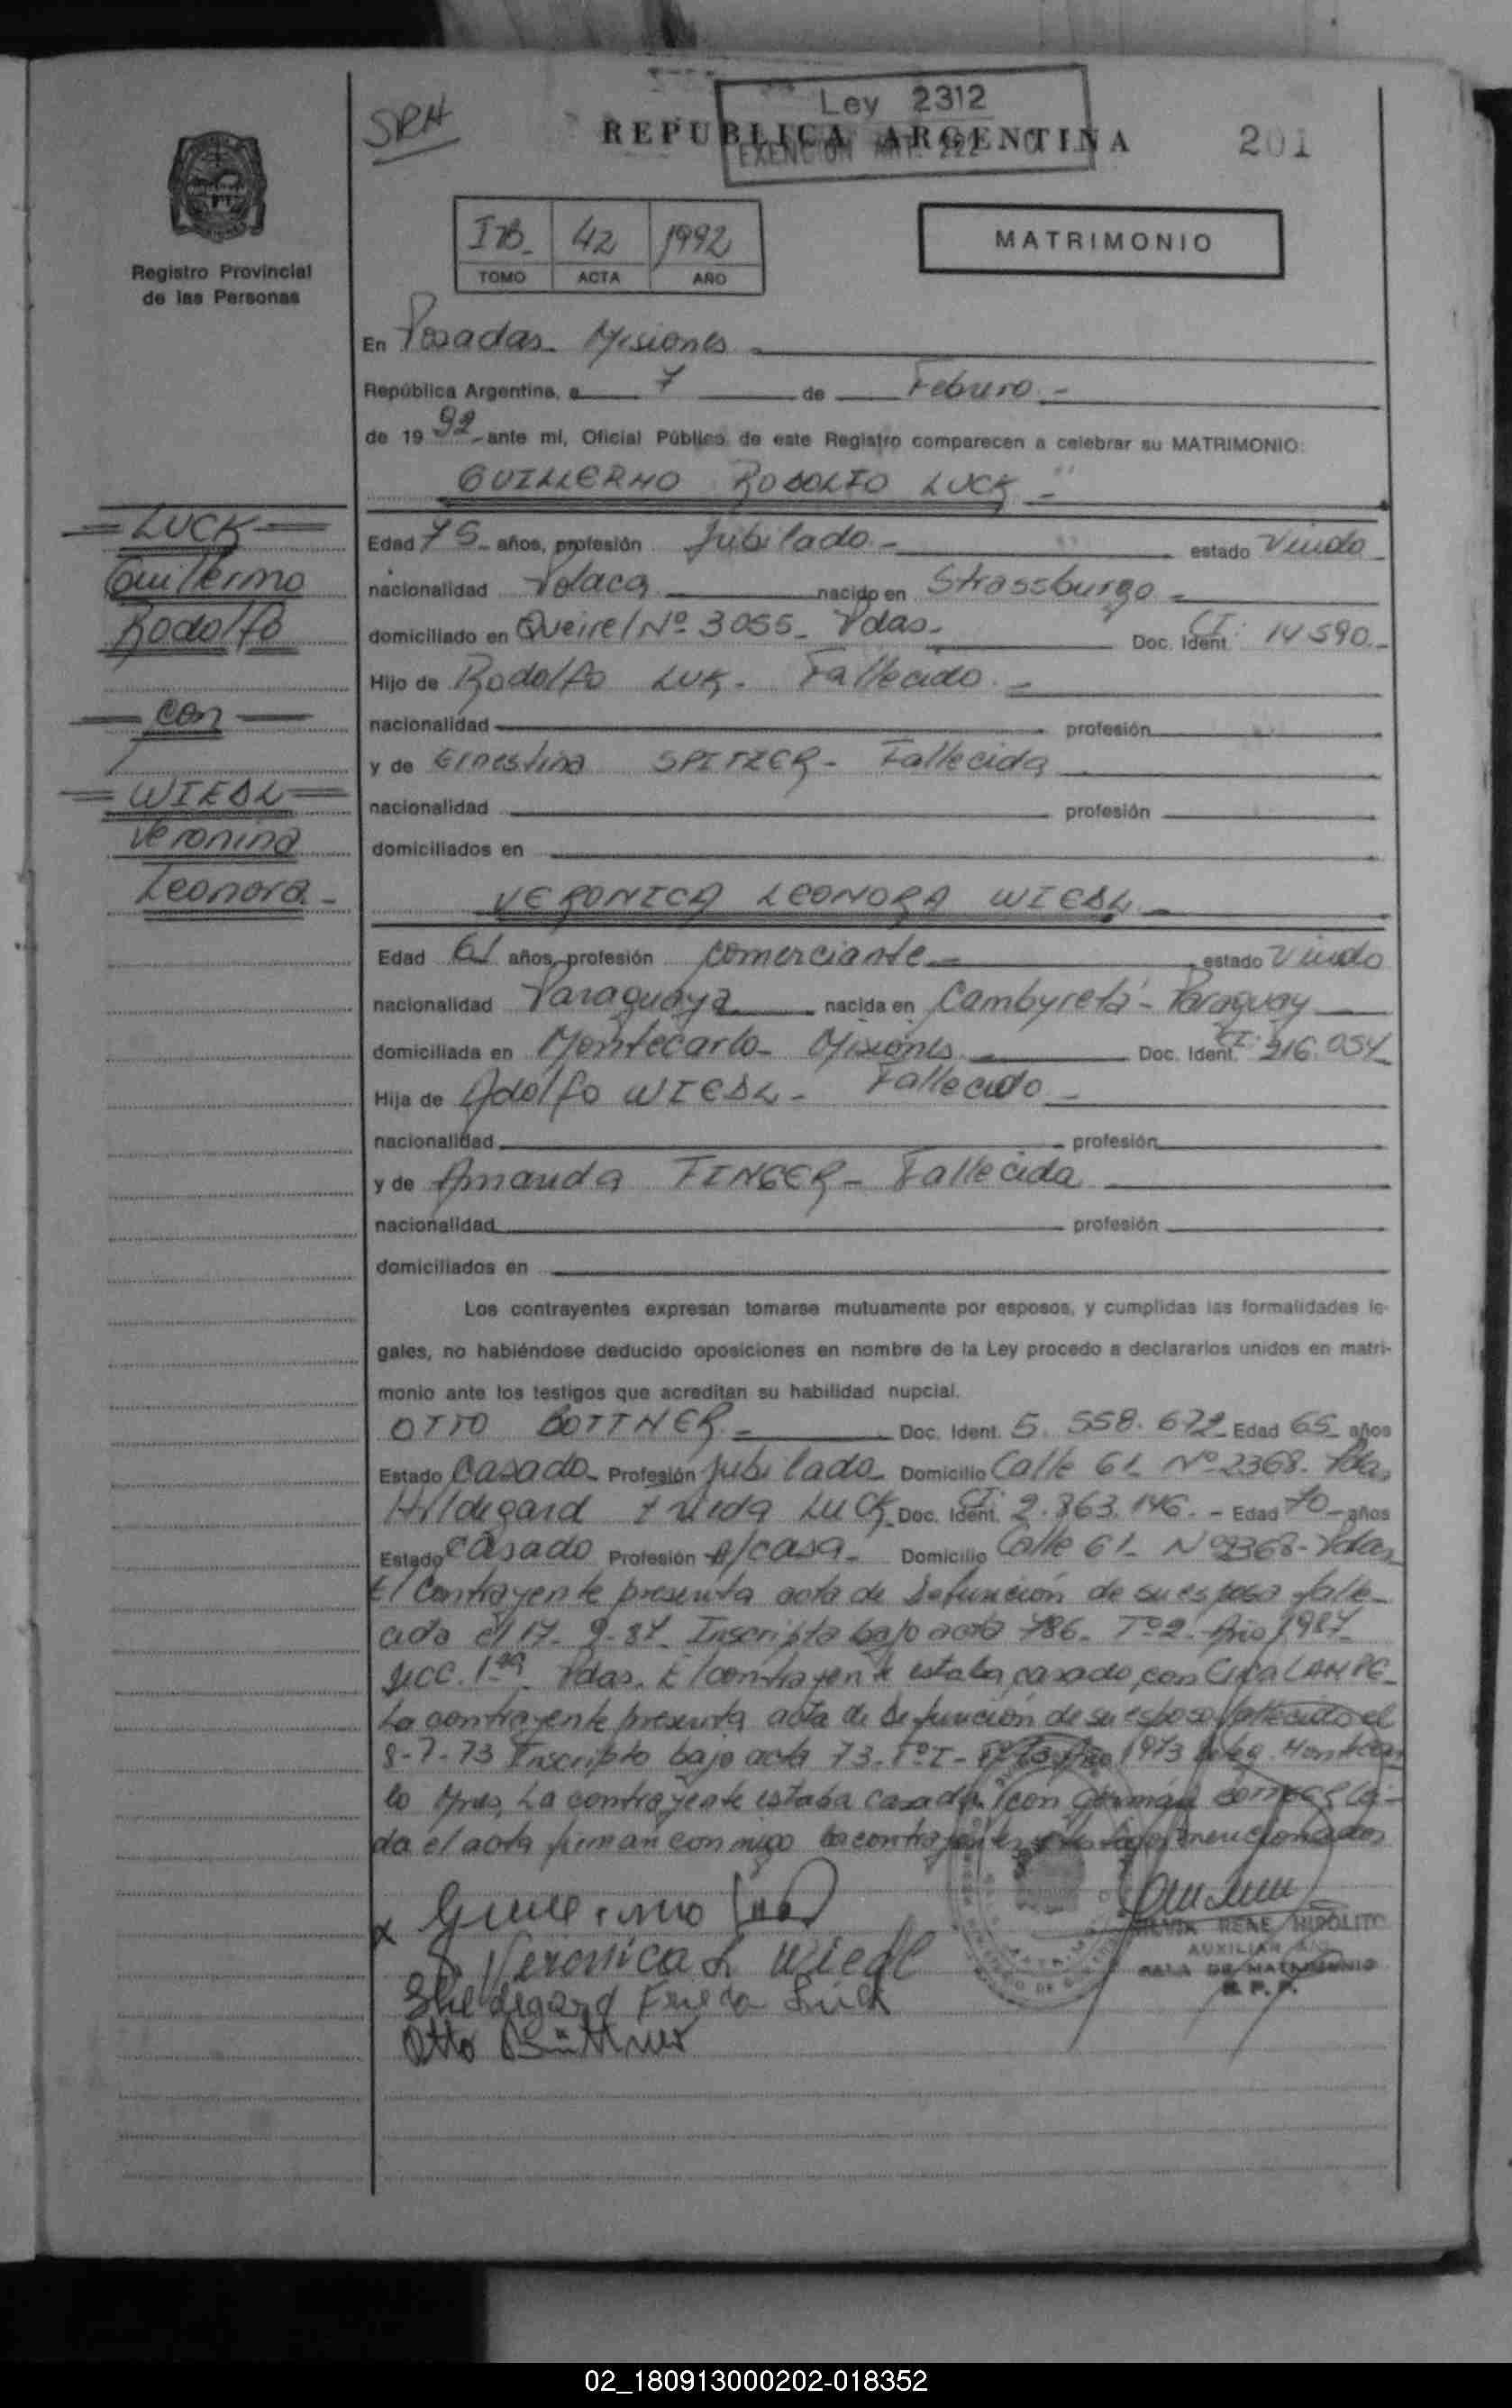 SRH
Ley 2312
REPUBLICA ARGENTINA
EXENCION ART. 222
201
Registro Provincial
de las Personas
I B. 42 1992
TOMO ACTA AÑO
MATRIMONIO
En Posadas - Misiones
República Argentina, a 7 de Febrero -
de 1992 ante mí, Oficial Público de este Registro comparecen a celebrar su MATRIMONIO:
GUILLERMO RODOLFO LUCK -
LUCK
Guillermo
Rodolfo
con
WIEDL
Veronina
Leonora -
Edad 75 años, profesión Jubilado - estado Viudo
nacionalidad Polaca nacido en Strassburgo -
domiciliado en Queirel Nº 3055 - Pdas - Doc. Ident. CI: 14590.-
Hijo de Rodolfo LUK - Fallecido -
nacionalidad profesión
y de Ernestina SPITZER - Fallecida
nacionalidad profesión
domiciliados en
VERONICA LEONORA WIEDL -
Edad 61 años, profesión comerciante - estado Viudo
nacionalidad Paraguaya nacida en Cambyretá - Paraguay
domiciliada en Montecarlo - Misiones Doc. Ident. CI: 216.054
Hija de Adolfo WIEDL - Fallecido -
nacionalidad profesión
y de Amanda FINGER - Fallecida
nacionalidad profesión
domiciliados en
Los contrayentes expresan tomarse mutuamente por esposos, y cumplidas las formalidades le-
gales, no habiéndose deducido oposiciones en nombre de la Ley procedo a declararlos unidos en matri-
monio ante los testigos que acreditan su habilidad nupcial.
OTTO BOTTNER - Doc. Ident. 5.558.672 - Edad 65 años
Estado Casado - Profesión Jubilado - Domicilio Calle 61 - Nº 2368 - Pdas
Hildegard Frieda LUCK - Doc. Ident. CI: 2.863.146. - Edad 70 - años
Estado Casado Profesión A/casa - Domicilio Calle 61 - Nº 2368 - Pdas
El contrayente presenta acta de Defunción de su esposa falle-
cida el 17-9-87 - Inscripta bajo acta 786 - Tº 2 - Año 1987 -
Secc. 1ra Pdas. El contrayente estaba casado con LAMPE -
La contrayente presenta acta de Defunción de su esposo fallecido el
8-7-73 Inscripto bajo acta 73 - Tº I - Año 1973 Deleg. Montecar
lo Mnes. La contrayente estaba casada con Germán
da el acta firman conmigo la contrayentes mencionados
x Guillermo Luck
Veronica L Wiedl
Hildegard Frieda Lück
Otto Büttner
SILVIA RENE HIPOLITO
AUXILIAR
SALA DE MATRIMONIO
R. P. P.
02_180913000202-018352